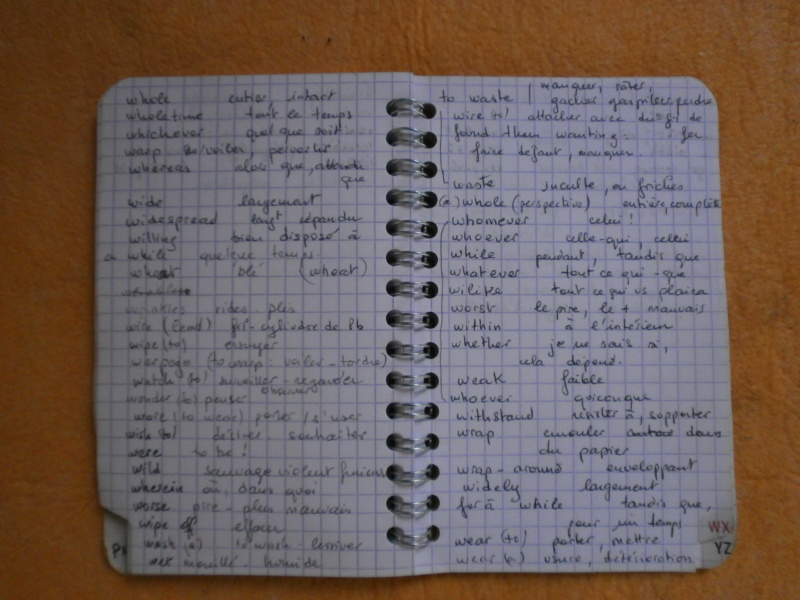 whole entier, intact
wholetime tout le temps
whichever quel que soit
warp se voiler pervertir
whereas alors que, attendu
que
wide largement
widespread largt répandu
willing bien disposé à
a while quelque temps
wheat blé (wheat)
wrinkles rides - plis
wire (lead) fil - cylindre de Pb
wipe (to) essuyer
warpage (to warp: voiler - tordre)
watch (to) surveiller - regarder
observer
wonder (to) penser
wore (to wear) porter / s'user
wish (to) désirer, souhaiter
were to be !
wild sauvage violent furieux
wherein où, dans quoi
worse pire - plus mauvais
wipe off effacer
wash (a) to wash - lessiver
wet mouillé - humide
manquer, rater,
to waste gacher gaspiller perdre
wire (to) attacher avec du fil de
fer
found them wanting:
faire défaut, manquer.
waste inculte, en friches
(a) whole (perspective) entière, complète
whomever celui !
whoever celle-qui, celui
while pendant, tandis que
whatever tout ce qui - que
wilike tout ce qui vs plaira
worst le pire, le + mauvais
within à l'intérieur
whether je ne sais si,
cela dépend.
weak faible
whoever quiconque
withstand résister à, supporter
wrap enrouler dans
du papier
wrap-around enveloppant
widely largement
for a while tandis que,
pour un temps
wear (to) porter, mettre
wear (a) usure, détérioration
WX
YZ